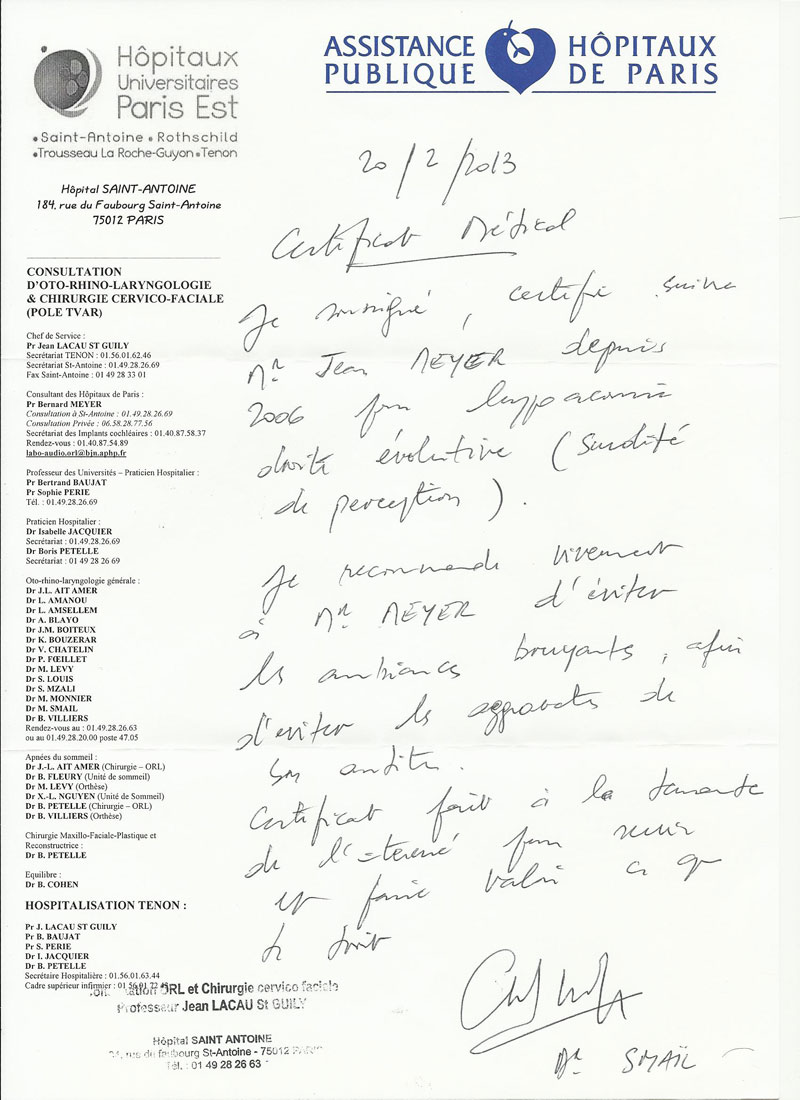 Hôpitaux
Universitaires
Paris Est
•Saint-Antoine • Rothschild
•Trousseau La Roche-Guyon •Tenon
ASSISTANCE HÔPITAUX
PUBLIQUE DE PARIS
Hôpital SAINT-ANTOINE
184, rue du Faubourg Saint-Antoine
75012 PARIS
CONSULTATION
D'OTO-RHINO-LARYNGOLOGIE
& CHIRURGIE CERVICO-FACIALE
(POLE TVAR)
Chef de Service :
Pr Jean LACAU ST GUILY
Secrétariat TENON : 01.56.01.62.46
Secrétariat St-Antoine : 01.49.28.26.69
Fax Saint-Antoine : 01 49 28 33 01
Consultant des Hôpitaux de Paris :
Pr Bernard MEYER
Consultation à St-Antoine : 01.49.28.26.69
Consultation Privée : 06.58.28.77.56
Secrétariat des Implants cochléaires : 01.40.87.58.37
Rendez-vous : 01.40.87.54.89
labo-audio.orl@bjn.aphp.fr
Professeur des Universités – Praticien Hospitalier :
Pr Bertrand BAUJAT
Pr Sophie PERIE
Tél. : 01.49.28.26.69
Praticien Hospitalier :
Dr Isabelle JACQUIER
Secrétariat : 01.49.28.26.69
Dr Boris PETELLE
Secrétariat : 01 49 28 26 69
Oto-rhino-laryngologie générale :
Dr J.L. AIT AMER
Dr L. AMANOU
Dr L. AMSELLEM
Dr A. BLAYO
Dr J.M. BOITEUX
Dr K. BOUZERAR
Dr V. CHATELIN
Dr P. FŒILLET
Dr M. LEVY
Dr S. LOUIS
Dr S. MZALI
Dr M. MONNIER
Dr M. SMAIL
Dr B. VILLIERS
Rendez-vous au : 01.49.28.26.63
ou au 01.49.28.20.00 poste 47.05
Apnées du sommeil :
Dr J.-L. AIT AMER (Chirurgie – ORL)
Dr B. FLEURY (Unité de sommeil)
Dr M. LEVY (Orthèse)
Dr X.-L. NGUYEN (Unité de Sommeil)
Dr B. PETELLE (Chirurgie – ORL)
Dr B. VILLIERS (Orthèse)
Chirurgie Maxillo-Faciale-Plastique et
Reconstructrice :
Dr B. PETELLE
Equilibre :
Dr B. COHEN
HOSPITALISATION TENON :
Pr J. LACAU ST GUILY
Pr B. BAUJAT
Pr S. PERIE
Dr I. JACQUIER
Dr B. PETELLE
Secrétaire Hospitalière : 01.56.01.63.44
Cadre supérieur infirmier :
ORL et Chirurgie cervico faciale
Professeur Jean LACAU St GUILY
Hôpital SAINT ANTOINE
rue du faubourg St-Antoine - 75012 PARIS
Tél. : 01 49 28 26 63
20/2/2013
Certificat Médical
Je soussigné, certifie suivre
Mr Jean MEYER depuis
2006 pour hypoacousie
droite évolutive (Surdité
de perception).
Je recommande vivement
à Mr MEYER d'éviter
les ambiances bruyantes, afin
d'éviter les de
son
Certificat fait à la demande
de l'interessé pour servir
et faire valoir ce que
de droit
Dr SMAÏL